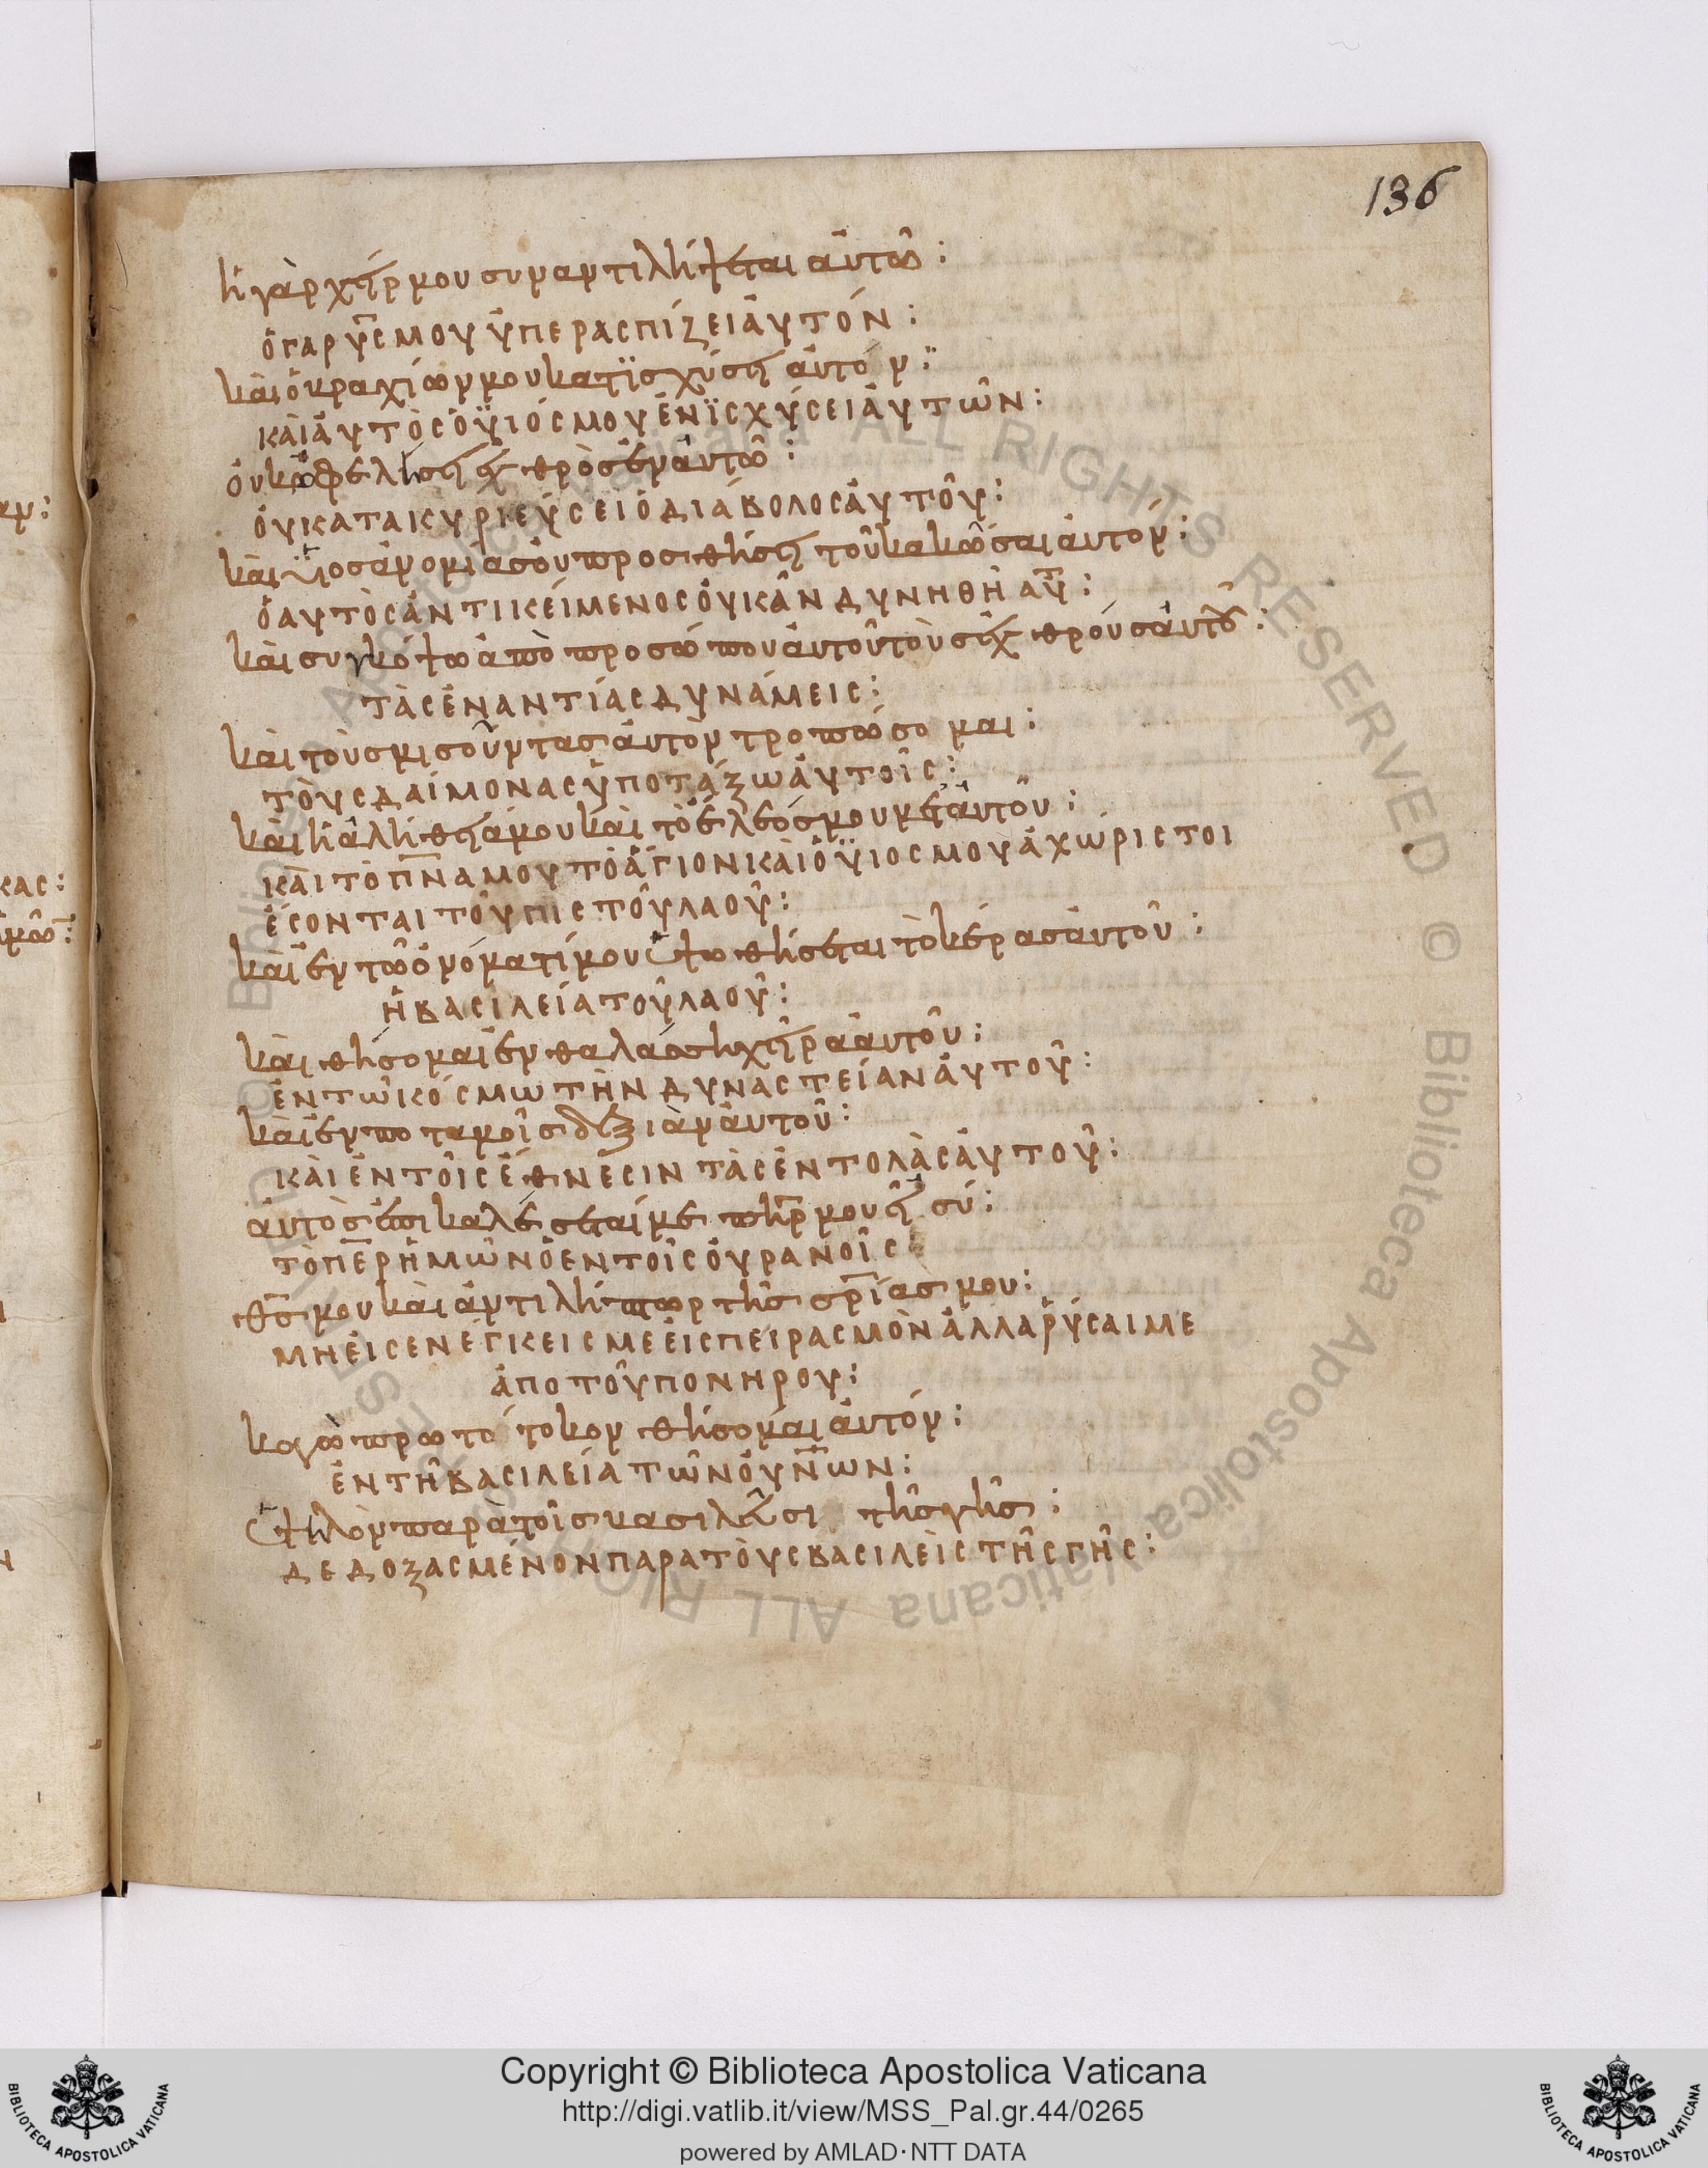 136
ἡ γὰρ χείρ μου συναντιλήψεται αὐτῶ :
ὁ γαρ υ̅ς̅ μου ὑπερασπίζει ἀυτόν :
καὶ ὁ βραχίων μου κατϊσχύσει αὐτόν :
κὰι ἀυτὸς ὁ ϋιός μου ἐνϊσχύσει ἀυτῶν :
ὀυκ ὠφελήσει ἐχθρὸς ἐν ἀυτῶ :
ὀυ κατακυριεύσει ὁ διάβολος ἀυτοῦ :
κὰι υἱὸς ἀνομίας ὀυ προσθήσει τοῦ κακῶσαι ἀυτόν :
ὁ αυτὸς ἀντικείμενος ὀυκ ἂν δυνηθῆ αυτ :
κὰι συγκόψω ἀπὸ προσώπου ἀυτοῦ τοὺς ἐχθρούς ἀυτοῦ :
τὰς ἐναντίας δυνάμεις :
κὰι τοὺς μισοῦντας ἀυτὸν τροπώσομαι :
τὸυς δαίμονας ὑποτάξω ἀυτοῖς :
κὰι ἡ ἀλήθειά μου κὰι τὸ ἔλεός μου μετ ἀυτοῦ :
κὰι τὸ π̅ν̅α μου τὸ ἅγιον κὰι ὁ ϋιος μου ἀχώριστοι
ἔσονται τοῦ πιστοῦ λαοῦ :
κὰι ἐν τῶ ὀνόματί μου ὑψωθήσεται τὸ κέρας ἀυτοῦ :
ἡ βασιλεία τοῦ λαοῦ :
κὰι θήσομαι ἐν θαλάσση χεῖρα ἀυτοῦ :
ἐν τῶ κόσμω τὴν δυναστείαν ἀυτοῦ :
κὰι ἐν ποταμοῖς δεξιὰν ἀυτοῦ :
κὰι ἐν τοῖς ἔθνεσιν τὰς ἐντολὰς ἀυτοῦ :
ἀυτὸς ἐπικαλέσεταί με π̅η̅ρ̅ μου εἶ σύ :
τὸ π̅ε̅ρ̅ ἡμῶν ὁ εν τοῖς ὀυρανοῖς :
θ̅ς̅ μου κὰι ἀντιλήπτωρ τῆς σ̅ρ̅ίας μου :
μη ἐισενέγκεις με ἐις πειρασμὸν ἀλλα ῥύσαι με
ἀπο τοῦ πονηρου :
καγὼ πρωτότοκον θήσομαι ἀυτόν :
ἐν τῆ βασιλεία τῶν ὀυν̅ων :
ὑψηλὸν παρὰ τοῖς βασιλεῦσι τῆς γῆς :
δεδοξασμένον παρα τὸυς βασιλεὶς τῆς γῆς :
Copyright © Biblioteca Apostolica Vaticana
http://digi.vatlib.it/view/MSS_Pal.gr.44/0265
powered by AMLAD·NTT DATA